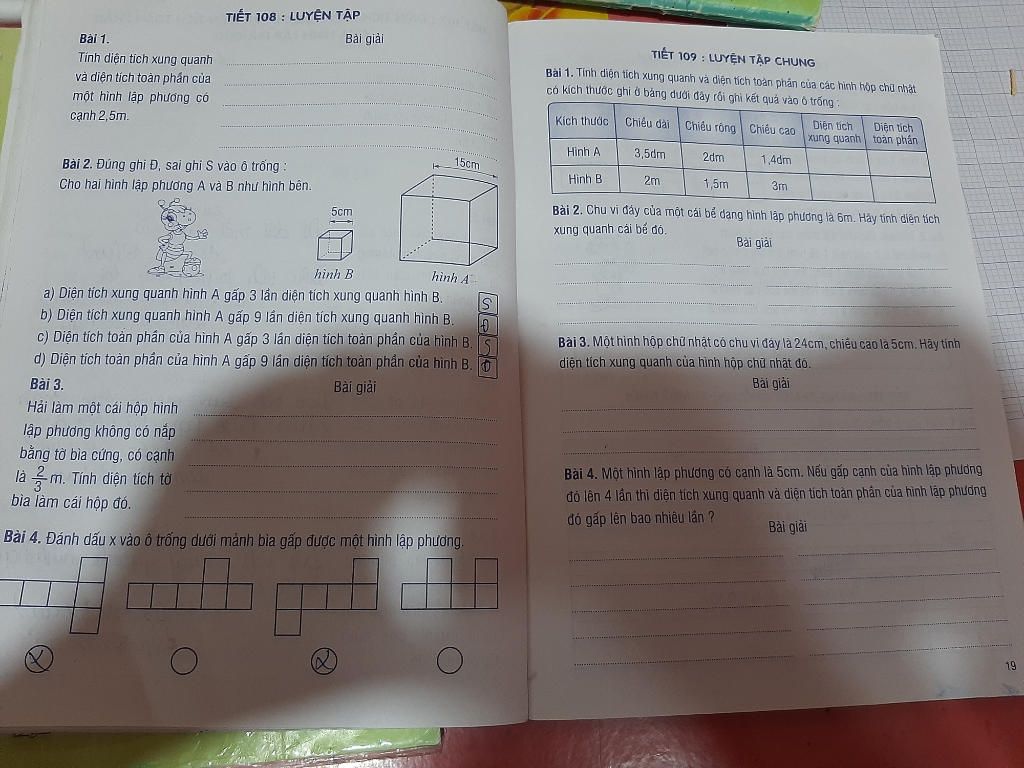 TIẾT 108 : LUYỆN TẬP
Bài 1.
Bài giải
Tính diện tích xung quanh
và diện tích toàn phần của
một hình lập phương có
cạnh 2,5m.
Bài 2. Đúng ghi Đ, sai ghi S vào ô trống :
Cho hai hình lập phương A và B như hình bên.
15cm
5cm
hình B
hình A
a) Diện tích xung quanh hình A gấp 3 lần diện tích xung quanh hình B.
S
b) Diện tích xung quanh hình A gấp 9 lần diện tích xung quanh hình B.
Đ
c) Diện tích toàn phần của hình A gấp 3 lần diện tích toàn phần của hình B.
S
d) Diện tích toàn phần của hình A gấp 9 lần diện tích toàn phần của hình B.
Đ
Bài 3.
Bài giải
Hải làm một cái hộp hình
lập phương không có nắp
bằng tờ bìa cứng, có cạnh
là 2/3 m. Tính diện tích tờ
bìa làm cái hộp đó.
Bài 4. Đánh dấu x vào ô trống dưới mảnh bìa gấp được một hình lập phương.
x
x
TIẾT 109 : LUYỆN TẬP CHUNG
Bài 1. Tính diện tích xung quanh và diện tích toàn phần của các hình hộp chữ nhật
có kích thước ghi ở bảng dưới đây rồi ghi kết quả vào ô trống :
Kích thước Chiều dài Chiều rộng Chiều cao Diện tích xung quanh Diện tích toàn phần
Hình A 3,5dm 2dm 1,4dm
Hình B 2m 1,5m 3m
Bài 2. Chu vi đáy của một cái bể dạng hình lập phương là 6m. Hãy tính diện tích
xung quanh cái bể đó.
Bài giải
Bài 3. Một hình hộp chữ nhật có chu vi đáy là 24cm, chiều cao là 5cm. Hãy tính
diện tích xung quanh của hình hộp chữ nhật đó.
Bài giải
Bài 4. Một hình lập phương có cạnh là 5cm. Nếu gấp cạnh của hình lập phương
đó lên 4 lần thì diện tích xung quanh và diện tích toàn phần của hình lập phương
đó gấp lên bao nhiêu lần ?
Bài giải
19